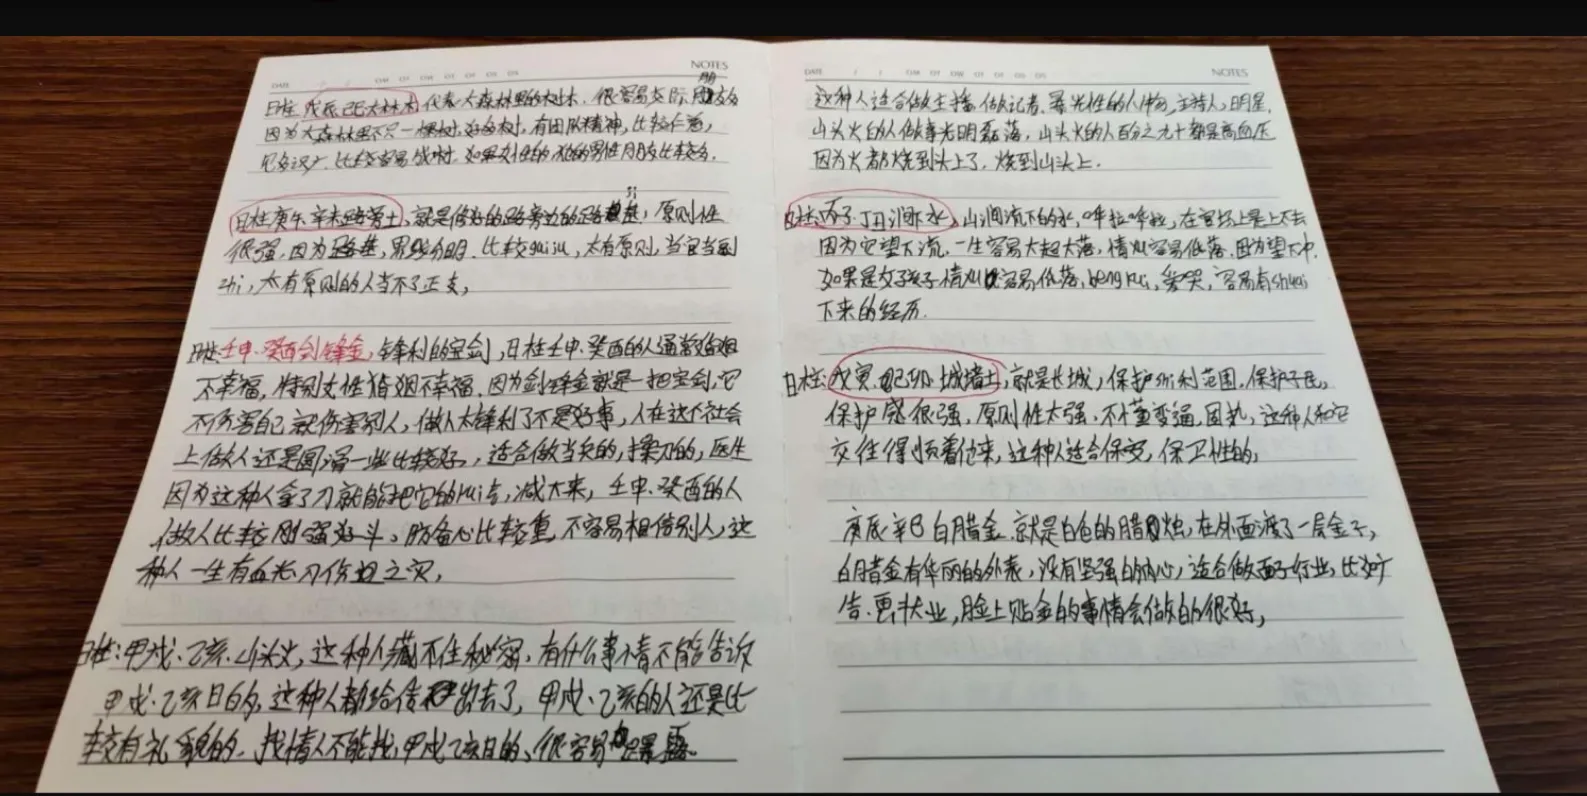 DATE / / NOTES
日柱 戊辰 己巳大林木 代表大森林里的树木，很容易交际朋友多
因为大森林里不只一棵树，好多树，有团队精神，比较仁慈，
见多识广，比较容易成材，如果女性的话的男性朋友比较多，
日柱庚午 辛未路旁土，就是修好的路旁边的路基，原则性
很强，因为路基，界线分明，比较guiju，太有原则，当官当到
zhi，太有原则的人当不了正支，
日柱：壬申、癸酉剑锋金，锋利的宝剑，日柱壬申、癸酉的人通常婚姻
不幸福，特别女性婚姻不幸福，因为剑锋金就是一把宝剑，它
不伤害自己就伤害别人，做人太锋利了不是好事，人在这个社会
上做人还是圆滑一些比较好，适合做当兵的，操刀的，医生
因为这种人拿了刀就能把它的rui去，减大来，壬申、癸酉的人
做人比较刚强好斗，防备心比较重，不容易相信别人，这
种人一生有血光刀伤之灾，
日柱：甲戌、乙亥、山头火，这种人藏不住秘密，有什么事情不能告诉
甲戌、乙亥日的，这种人都给传出去了，甲戌、乙亥的人还是比
较有礼貌的、找情人不能找，甲戌乙亥日的、很容易暴露。
DATE / / NOTES
这种人适合做主播，做记者、曝光性的人物，主持人，明星，
山头火的人做事光明磊落，山头火的人百分之九十都是高血压
因为火都烧到头上了，烧到山头上．
日柱：丙子、丁丑涧下水，山涧流下的水，哗啦哗啦，在官场上是上不去
因为它望下流，一生容易大起大落，情绪容易低落，因为望下冲，
如果是女孩子情绪容易低落，beng kui，爱哭，容易有shuai
下来的经历．
日柱：戊寅、己卯、城墙土，就是长城，保护所利范围，保护子民，
保护感很强，原则性太强，不懂变通，固执，这种人和它
交往得顺着他来，这种人适合保安，保卫性的，
庚辰辛巳白腊金，就是白色的腊烛，在外面渡了一层金子，
白腊金有华丽的外表，没有坚强的内心，适合做面子行业，比如广
告、画状业，脸上贴金的事情会做的很好，